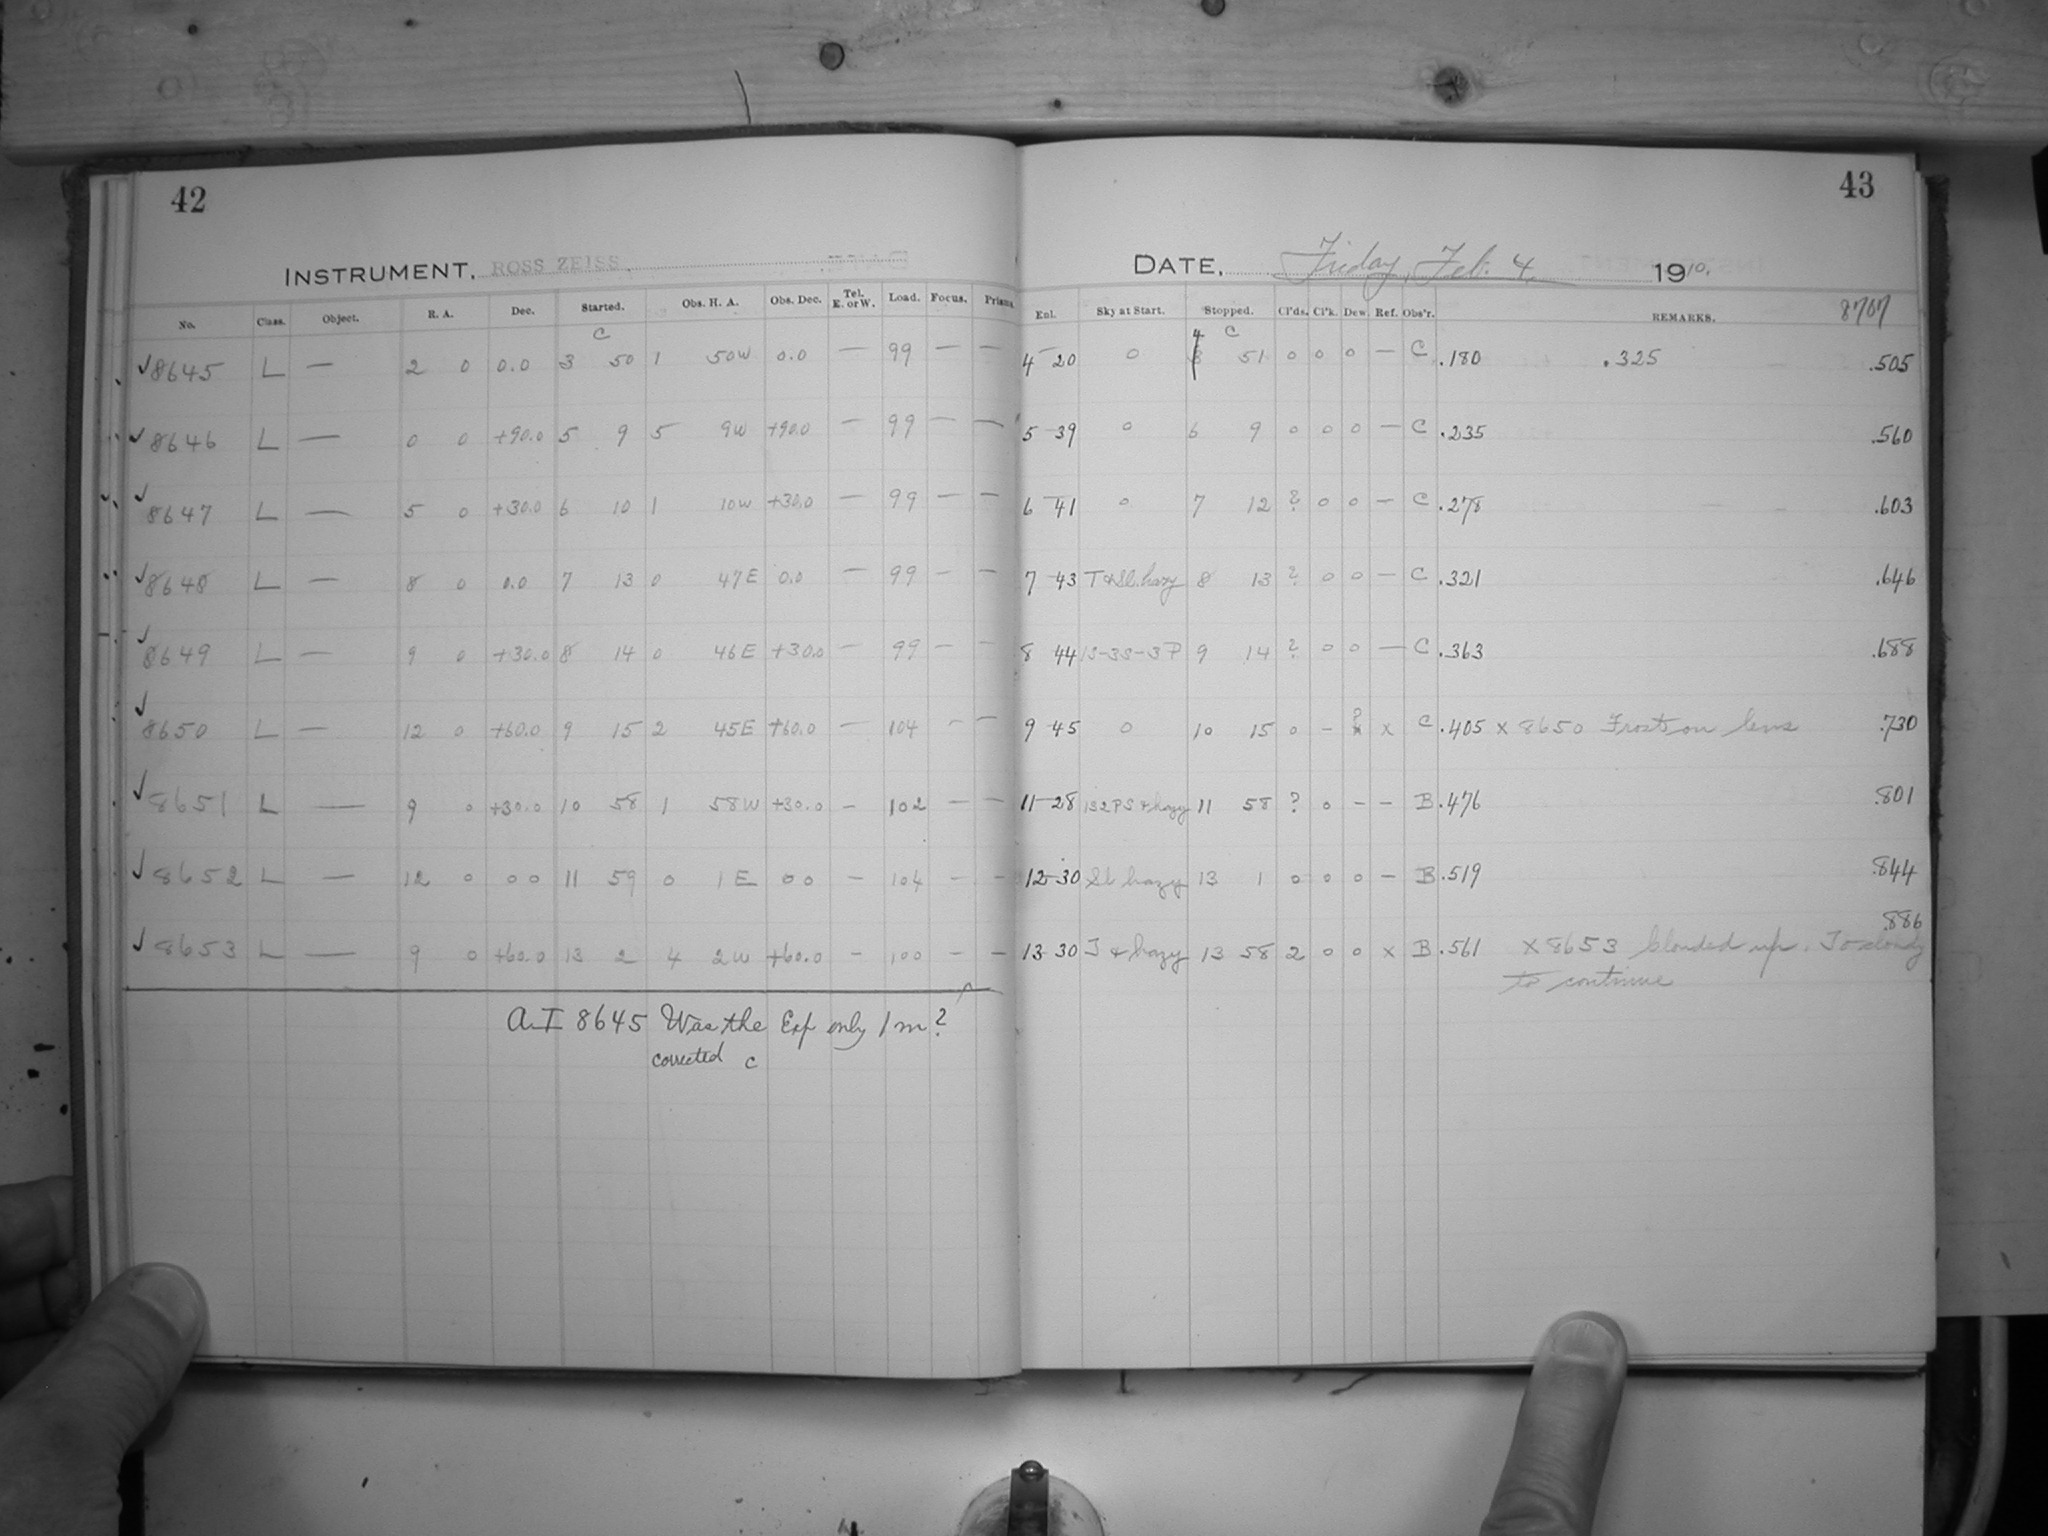 42
INSTRUMENT, ROSS ZEISS.
No. Class. Object. R. A. Dec. Started. Obs. H. A. Obs. Dec. Tel. E. or W. Load. Focus. Prisms
C
✓8645 L — 2 0 0.0 3 50 1 50W 0.0 — 99 — —
✓8646 L — 0 0 +90.0 5 9 5 9W +90.0 — 99 — —
✓8647 L — 5 0 +30.0 6 10 1 10W +30.0 — 99 — —
✓8648 L — 8 0 0.0 7 13 0 47E 0.0 — 99 — —
✓8649 L — 9 0 +30.0 8 14 0 46E +30.0 — 99 — —
✓8650 L — 12 0 +60.0 9 15 2 45E +60.0 — 104 — —
✓8651 L — 9 0 +30.0 10 58 1 58W +30.0 — 102 — —
✓8652 L — 12 0 00 11 59 0 1E 00 — 104 — —
✓8653 L — 9 0 +60.0 13 2 4 2W +60.0 — 100 — —
A.I 8645 Was the Exp only 1m?
corrected C
43
DATE, Friday, Feb. 4, 1910.
8707
Enl. Sky at Start. Stopped. Cl'ds. Cl'k. Dew. Ref. Obs'r. REMARKS.
4 C
4 20 0 51 0 0 0 — C .180 .325 .505
5 39 0 6 9 0 0 0 — C .235 .560
6 41 0 7 12 ? 0 0 — C .278 .603
7 43 T & Sl. hazy 8 13 ? 0 0 — C .321 .646
8 44 1S-3S-3P 9 14 ? 0 0 — C .363 .688
9 45 0 10 15 0 — ? x C .405 x 8650 Frost on lens .730
11 28 hazy 11 58 ? 0 — — B .476 .801
12 30 Sl hazy 13 1 0 0 0 — B .519 .844
.886
13 30 T & hazy 13 58 2 0 0 x B .561 x 8653 Clouded up. Too cloudy
to continue